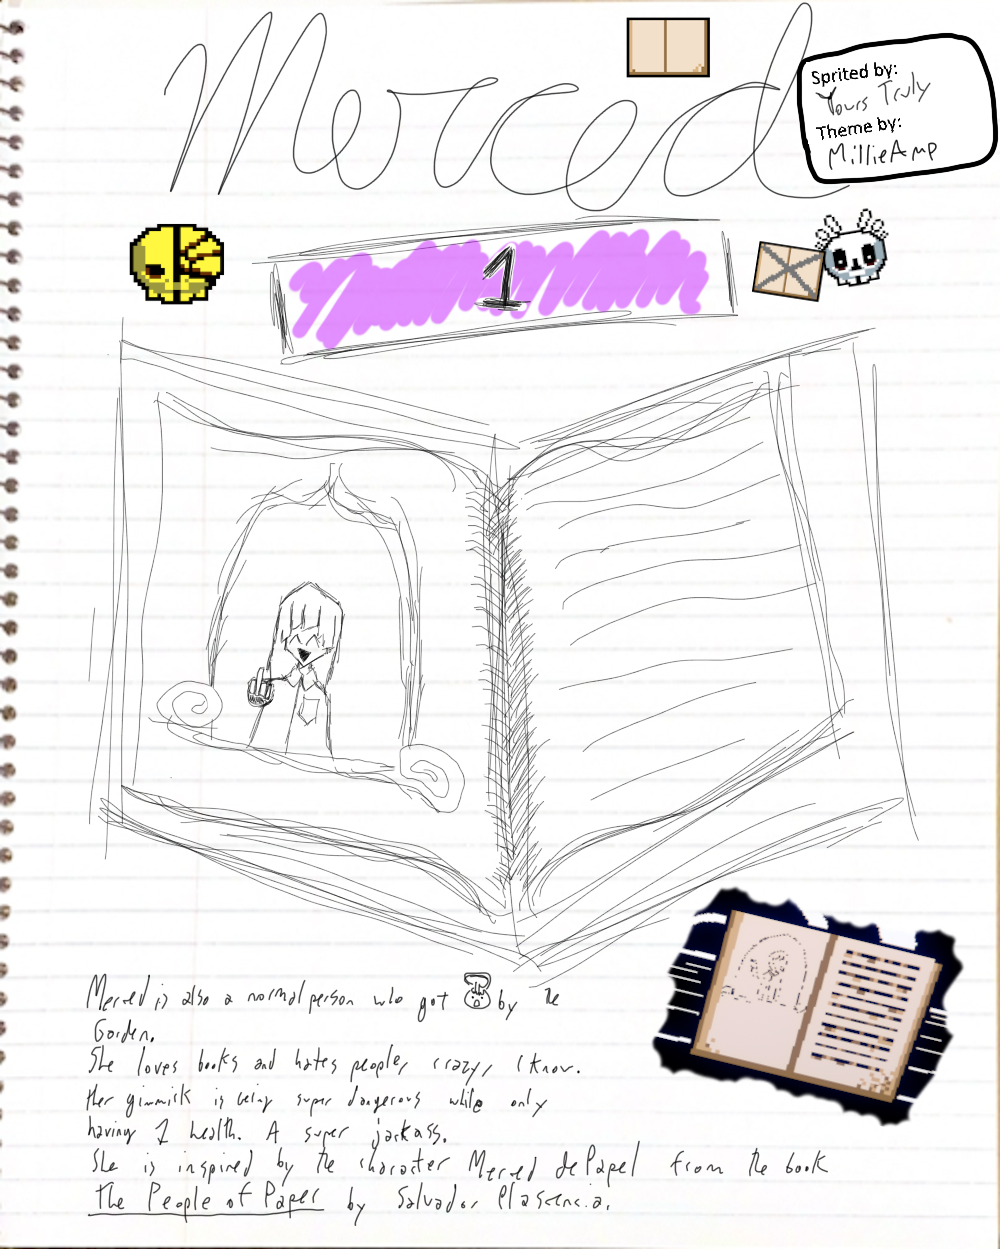 Merced
Sprited by:
Yours Truly
Theme by:
MillieAmp
1
Merced is also a normal person who got by the
Garden.
She loves books and hates people, crazy, I know.
Her gimmick is being super dangerous while only
having 1 health. A super jackass.
She is inspired by the character Merced de Papel from the book
The People of Paper by Salvador Plascencia.